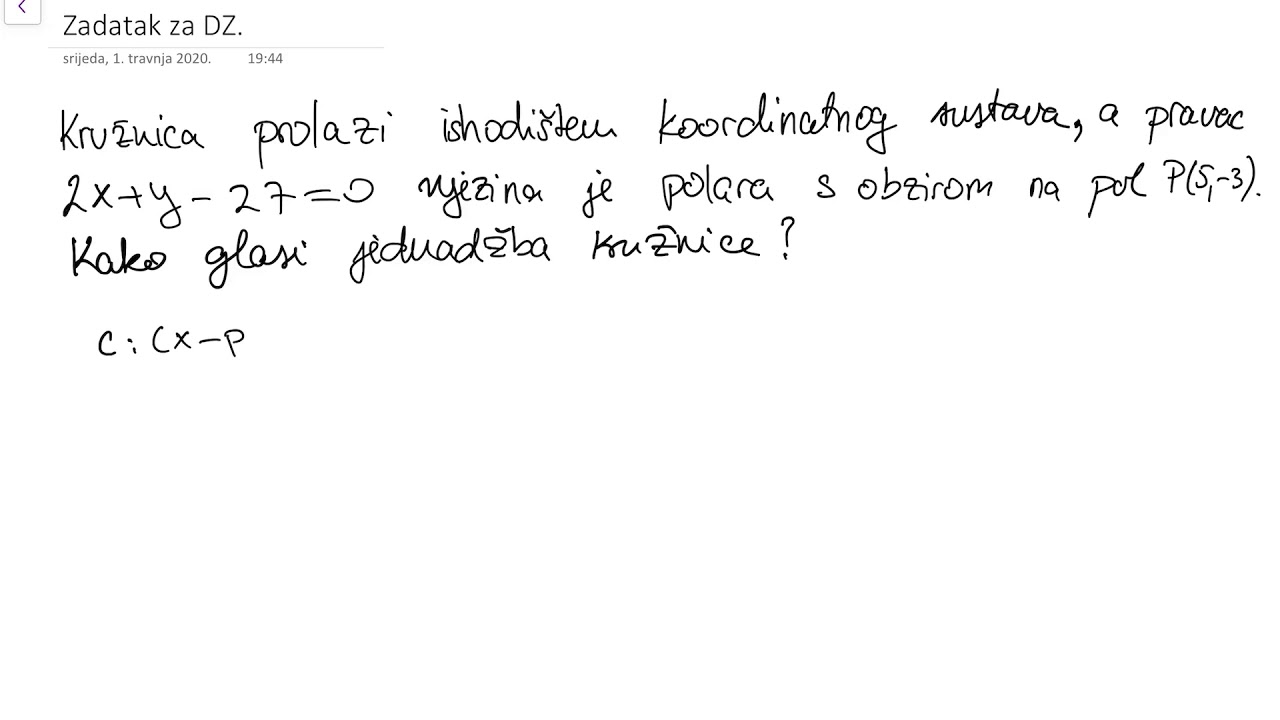 Zadatak za DZ.
srijeda, 1. travnja 2020. 19:44
Kružnica prolazi ishodištem koordinatnog sustava, a pravac
2x+y-27=0 njezina je polara s obzirom na pol P(5,-3).
Kako glasi jednadžba kružnice?
C: (x-p